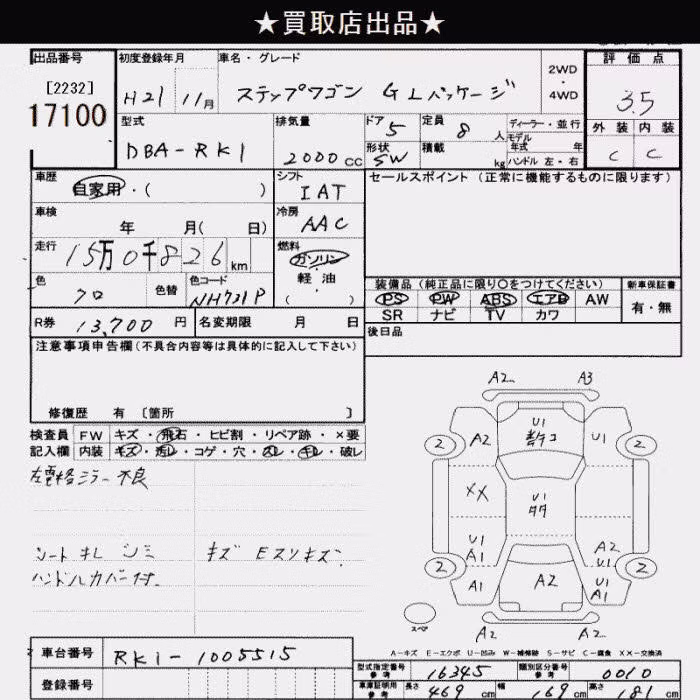 ★買取店出品★
出品番号 初度登録年月 車名・グレード 2WD・4WD 評価点
[2232] H21 11月 ステップワゴン GLパッケージ 3.5
17100
型式 排気量 ドア 5 定員 8人 ディーラー・並行 外装 内装
DBA-RK1 2000cc 形状 SW 積載 kg モデル年式 年 C C
ハンドル 左・右
車歴 自家用・( ) シフト IAT セールスポイント (正常に機能するものに限ります)
車検 年 月( 日) 冷房 AAC
走行 15万0千826km 燃料 ガソリン
軽・油
( )
色 クロ 色替 色コード NH731P
装備品 (純正品に限り○をつけてください) 新車保証書
PS PW ABS エアB AW 有・無
SR ナビ TV カワ
R券 13,700円 名変期限 月 日 後日品
注意事項申告欄 (不具合内容等は具体的に記入して下さい)
修復歴 有 [箇所 ]
検査員 FW キズ・飛石・ヒビ割・リペア跡・×要
記入欄 内装 キズ・汚レ・コゲ・穴・スレ・キレ・破レ
左電格ミラー不良
シートキレ シミ キズ Eスリキズ
ハンドルカバー付.
A2 A3
A2 U1 U1
2 2
XX U1
U1 A1 A2 U1
2 2
A1 A2 U1 A1
スペア A2 A2
A-キズ E-エクボ U-凹み W-補修跡 S-サビ C-腐食 XX-交換済
車台番号 RK1-1005515
登録番号
型式指定番号 参考 16345 類別区分番号 参考 0010
車庫証明用 参考 長さ 469cm 幅 169cm 高さ 181cm